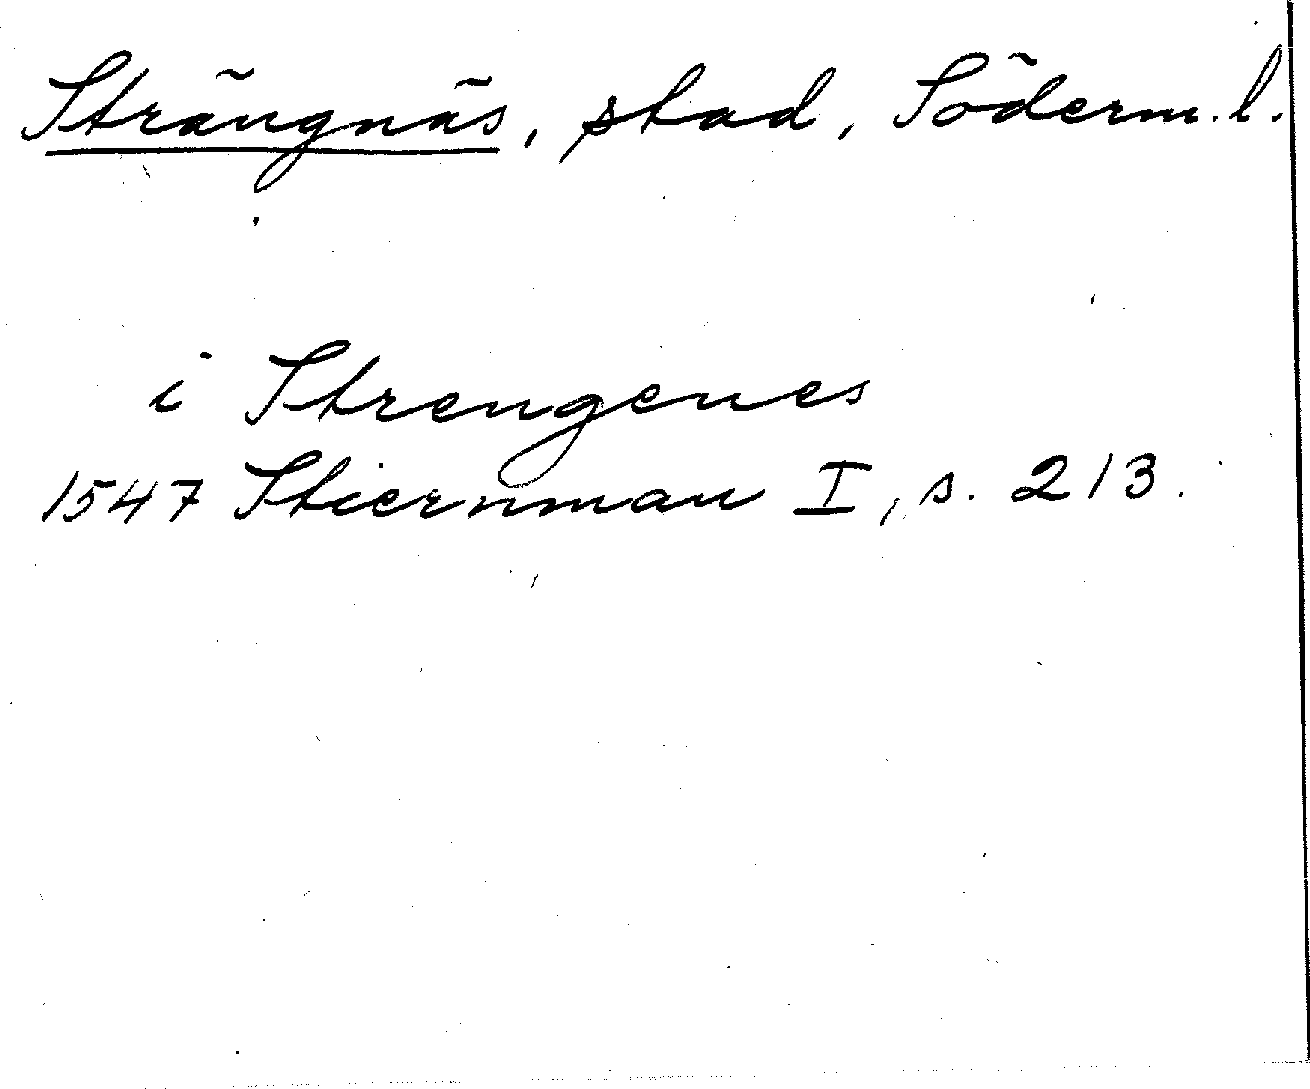 Strängnäs, stad, Söderm. l.
i Strengenes
1547 Stiernman I, s. 213.